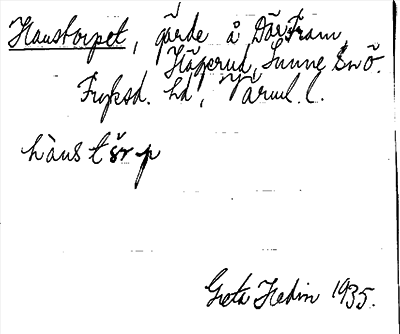 Haustorpet, gärde å Där Fram,
Häperud, Sunne sn ö.
Fryksd. hd, Värml. l.
hàus tɔrp
Greta Hedin 1935.